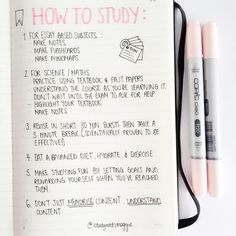 HOW TO STUDY:
1. FOR ESSAY BASED SUBJECTS:
MAKE NOTES
MAKE FLASHCARDS
MAKE MINDMAPS
2. FOR SCIENCE / MATHS
PRACTICE USING TEXTBOOK & PAST PAPERS
UNDERSTAND THE COURSE AS YOU'RE LEARNING IT.
DON'T WAIT UNTIL THE EXAM TO ASK FOR HELP
- HIGHLIGHT YOUR TEXTBOOK
MAKE NOTES
3. REVISE IN SHORT 30 MIN BURSTS THEN TAKE A
5 MINUTE BREAK (SCIENTIFICALLY PROVEN TO BE
EFFECTIVE)
4. EAT A BALANCED DIET, HYDRATE & EXERCISE
5. MAKE STUDYING FUN BY SETTING GOALS AND
REWARDING YOURSELF WHEN YOU'VE REACHED
THEM.
6. DON'T JUST MEMORISE CONTENT, UNDERSTAND
CONTENT
copic ciao